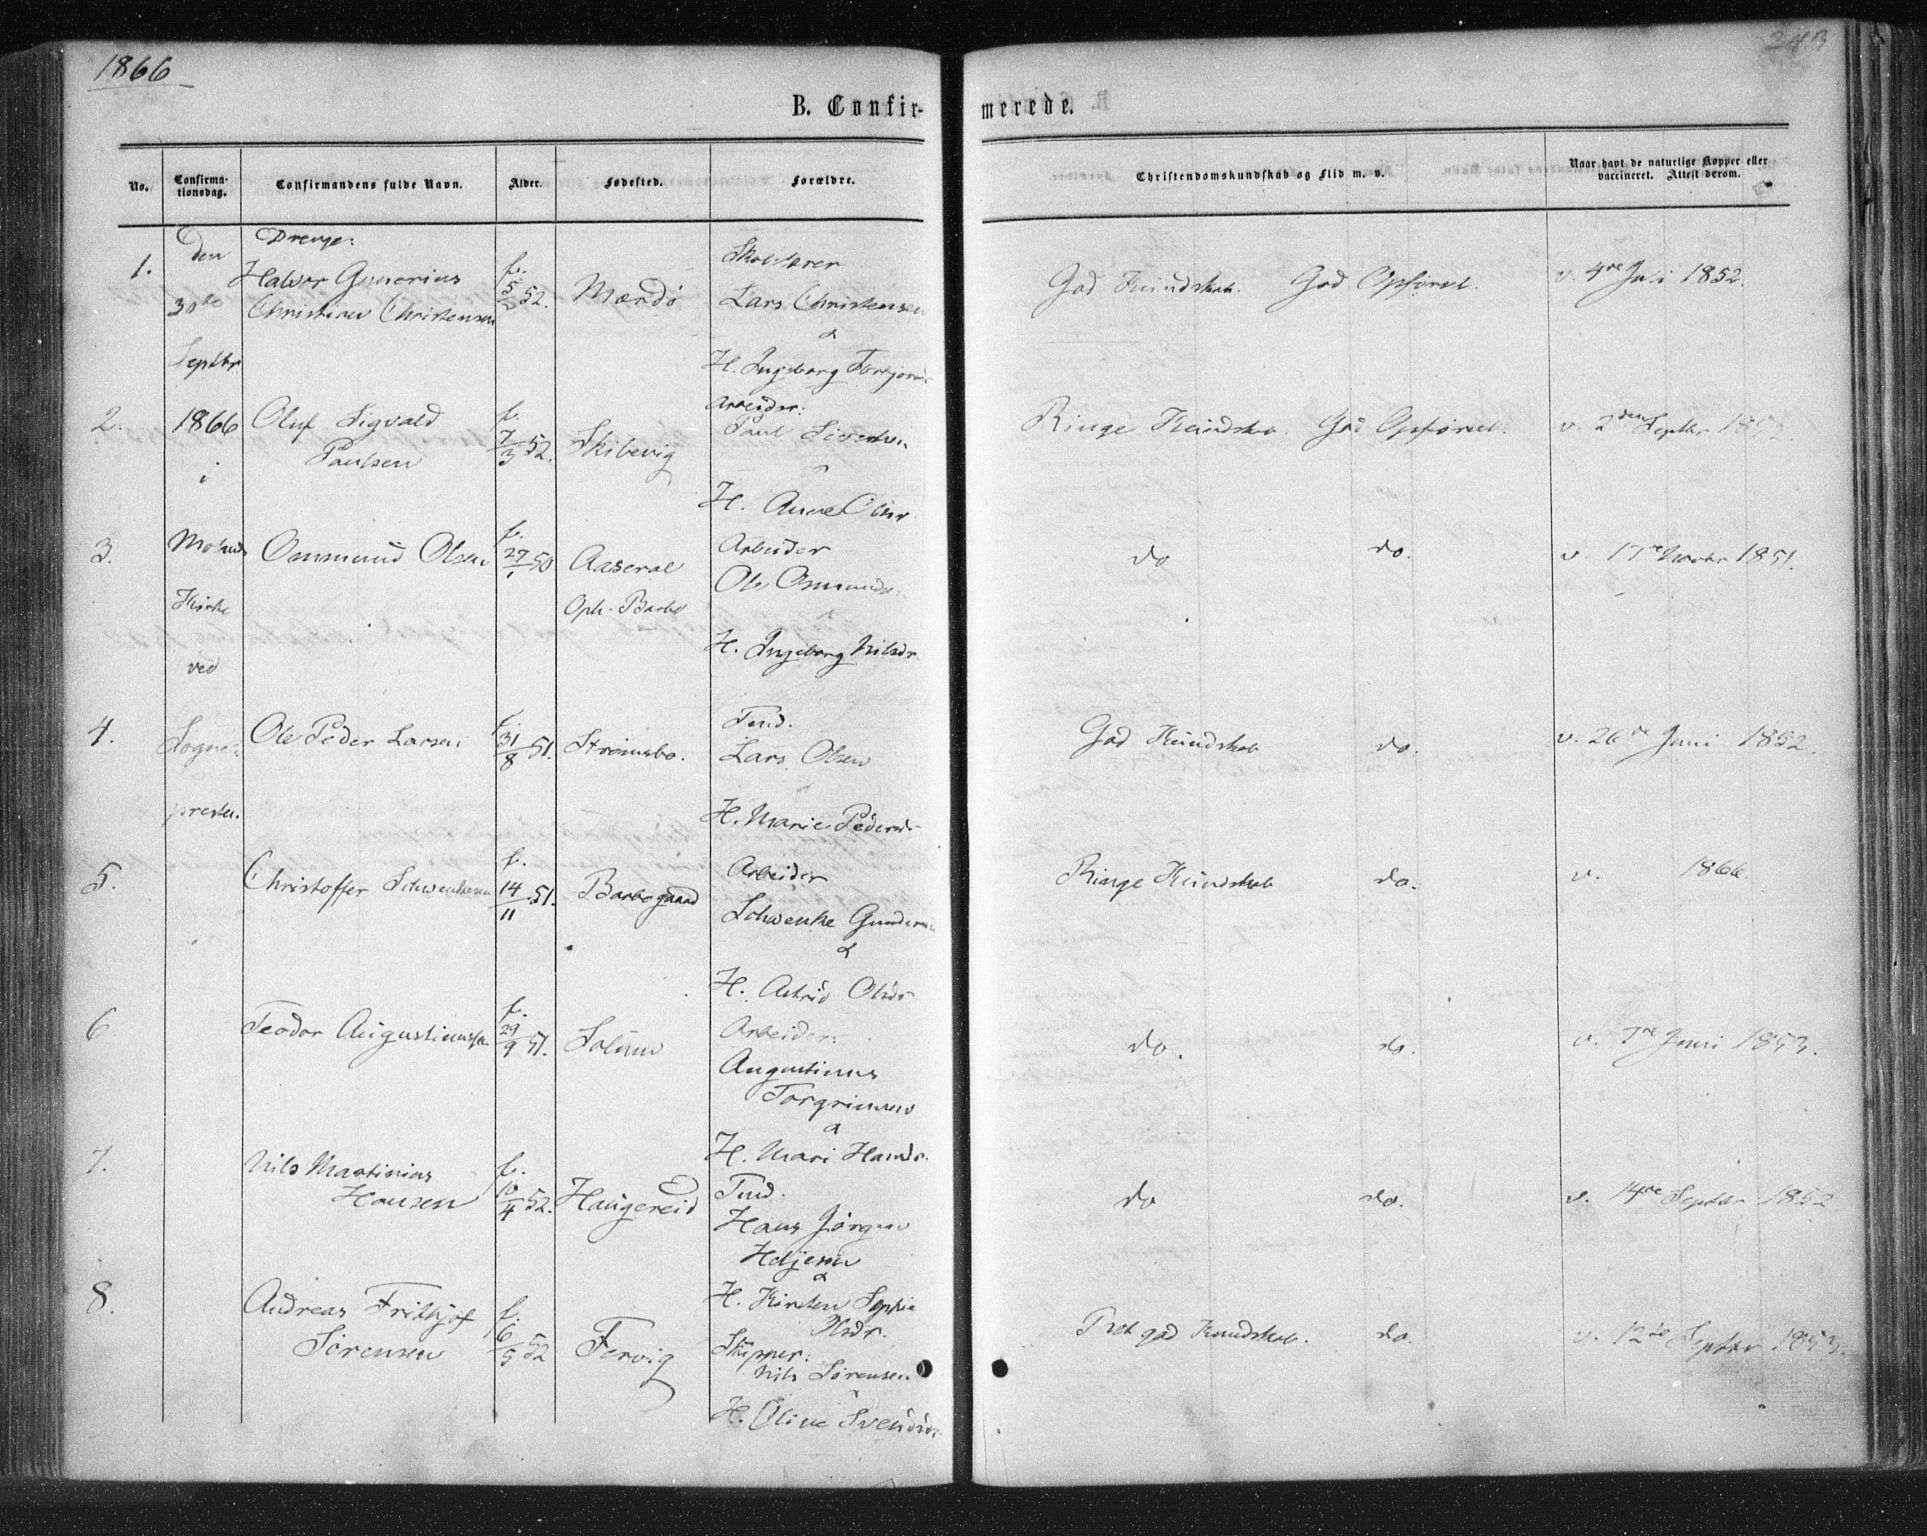 1866
243
B. Confir-
merede.
No.
Confirma-
tionsdag.
Confirmandens fulde Navn.
Alder.
Fødested.
Forældre.
Christendomskundskab og Flid m. v.
Naar havt de naturlige Kopper eller
vaccineret. Attest derom.
den
30te
Septbr
1866
i
Kirke
ved
Sogne-
presten.
Drenge:
1. Halvor Gunerius
Christian Christensen
f. 5/2 52. Mærdø
Skolelærer
Lars Christensen
&
H. Ingeborg
God Kundskab. God Opførsel. v. 4de Juli 1852.
2. Oluf Sigvald
Paulsen
f. 7/3 52. Skibevig
Arbeider:
Paul Sivertsen
H. Anne Olsdr
Ringe Kundskab. God Opførsel. v. 2den Septbr 1852.
3. Osmund Olsen
f. 27/1 50 Aaseral
Oph. Barbo
Arbeider
Ole Osmunds
H. Ingeborg Nilsdr
do do. v. 17de Novbr 1851.
4. Ole Peder Larsen
f. 31/8 51. Strømsbo.
Tmd.
Lars Olsen
H. Marie Pedersdr
God Kundskab do. v. 26de Juni 1852.
5. Christoffer Schwenkesen
f. 14/11 51. Barbogaard
Arbeider
Schwenke Gundersen
&
H. Astrid Olsdr
Ringe Kundskab do. v. 1866.
6 Teodor Augustinussen
f. 29/9 51. Solum
Arbeider:
Augustinus
Torgrimsen
&
H. Mari Hansdr.
do. do. v. 7de Juni 1853.
7. Nils Martinius
Hansen
f. 10/4 52. Haugereid
Tmd.
Hans Jørgen
Heljesen
&
H. Kirsten Sophie
Olsdr.
do do. v. 14de Septbr 1852
8. Andreas Frithjof
Sørensen
f. 6/5 52 Fervig
Skipper:
Nils Sørensen
H. Oline Svendsdr
Ret god Kundskab. do. v. 12te Septbr 1853.